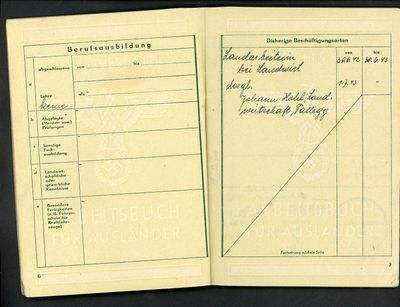 Berufsausbildung
a
abgeschlossene
von
bis
Lehre
als
Keine
b
Abgelegte
(Meister- usw.)
Prüfungen
c
Sonstige
Fach-
ausbildung
d
Landwirt-
schaftliche
oder
gewerbliche
Kenntnisse
e
Besondere
Fertigkeiten
(z. B. Führer-
schein für
Kraftfahr-
zeuge)
ARBEITSBUCH
FÜR AUSLÄNDER
6
Bisherige Beschäftigungsarten
von
bis
Landarbeiterin
bei Landwirt
30.6.42
30.6.43
desgl.
1.7.43
Johann Hohl, Land-
wirtschaft, Fallegg
ARBEITSBUCH
FÜR AUSLÄNDER
Fortsetzung nächste Seite
7